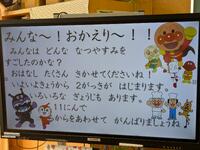 みんな～！おかえり～！！
みんなは どんな なつやすみを
すごしたのかな？
おはなし たくさん きかせてくださいね！
いよいよきょうから 2がっきが はじまります。
いろいろな ぎょうじも あります。
11にんで
ちからをあわせて がんばりましょうね♪